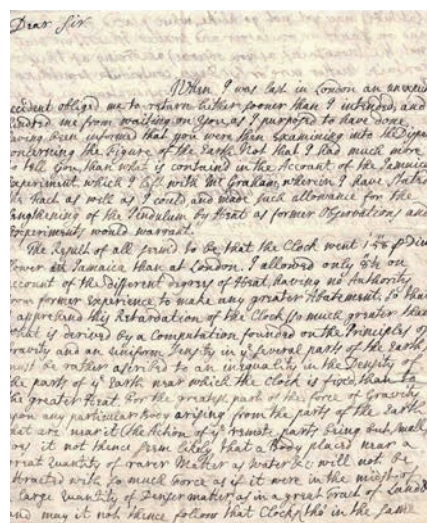 Dear Sir
When I was last in London an unexpec
ccident obliged me to return hither sooner than I intended, and
indred me from waiting on You, as I purposed to have done
aving been informed that you were then Examining into the Disput
oncerning the Figure of the Earth. Not that I had much more
o tell You than what is contained in the Account of the Jamaica
xperiment which I left with Mr Graham, wherein I have Stated
the Fact as well as I could and made such allowance for the
engthening of the Pendulum by Heat as former Observations and
Experiments would warrant.
The Result of all seem'd to be that the Clock went
lower in Jamaica than at London. I allowed only on
ccount of the Different degrees of Heat, having no Authority
rom former Experience to make any greater Abatement. So that
apprehend this Retardation of the Clock (so much greater than
what is derived by a Computation founded on the Principles of
ravity and an uniform Density in ye several parts of the Earth
must be rather ascribed to an inequality in the Density of
he parts of ye Earth near which the Clock is fixed than to
he greater Heat. For the greatest part of the force of Gravity
upon any particular Body arising from the parts of the Earth
hat are near it (the Action of ye remote parts being but small
oes it not thence seem likely that a Body placed near a
reat Quantity of rarer Matter as Water &c will not be
ttracted with so much Force as if it were in the midst of
large Quantity of Denser matter as in a great Tract of Land
nd may it not thence follow that Clocks tho' in the same